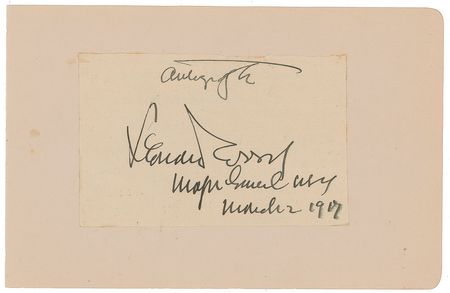 Autograph
Leonard Wood
Major General USA
March 2 1917